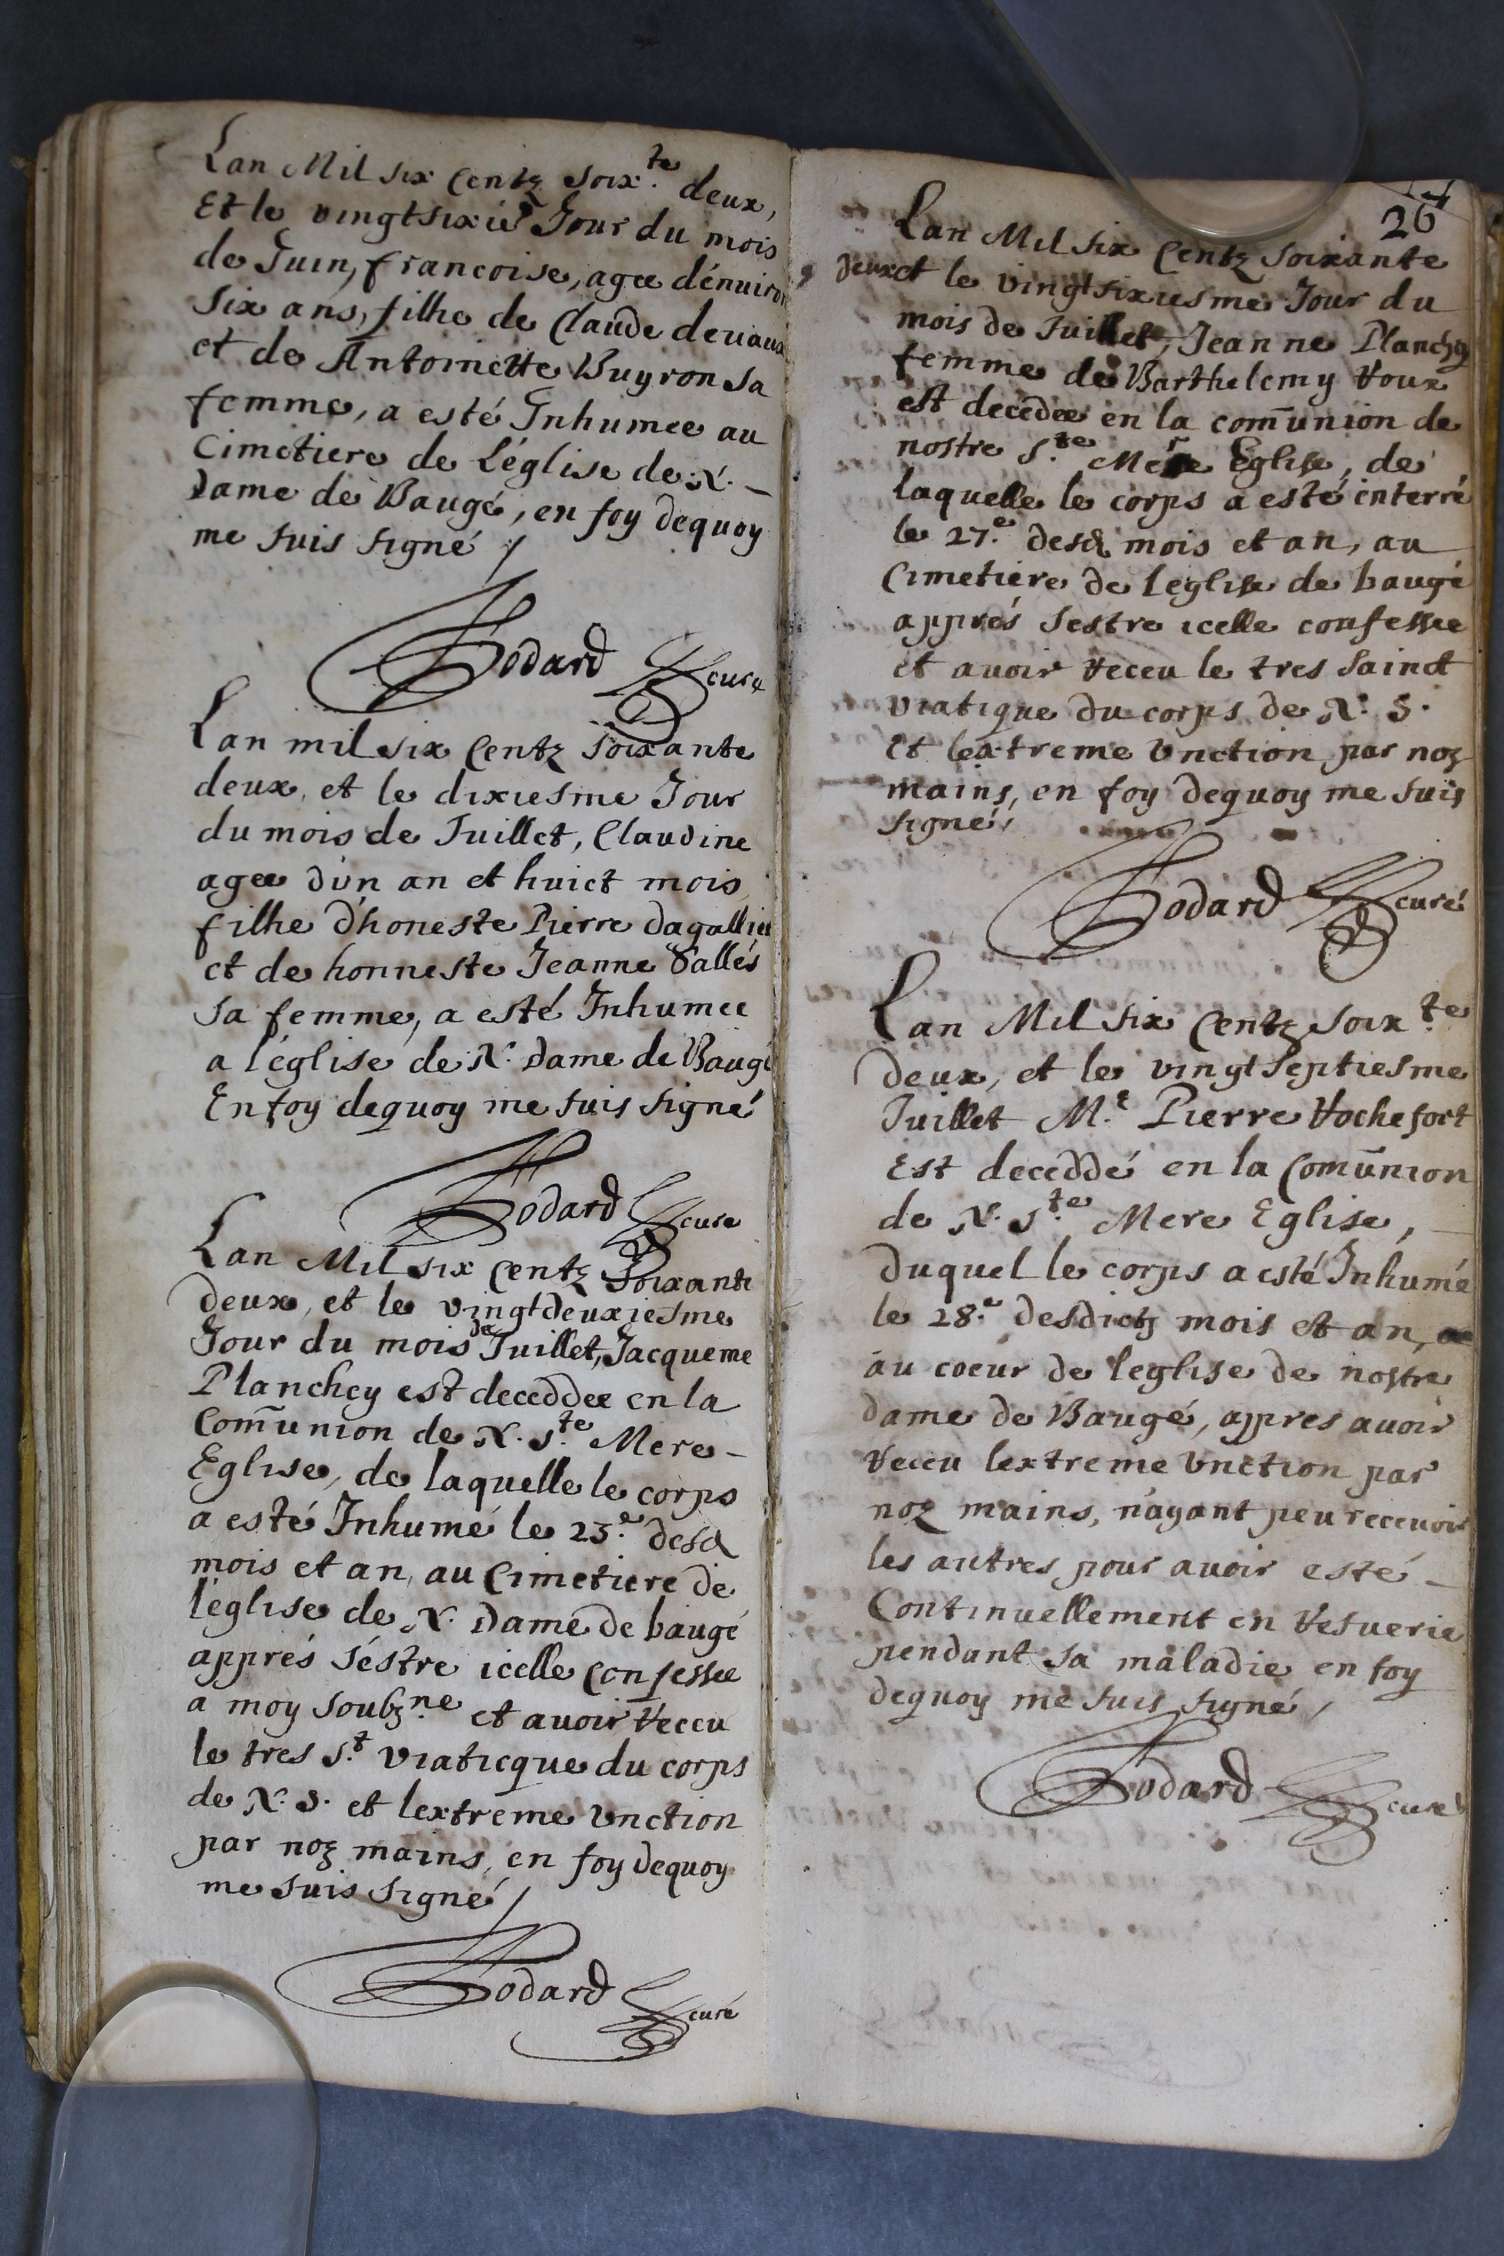 Lan Mil six Centz soix.te deux,
Et le vingtsixie Jour du mois
de Juin, francoise, agee dénuiron
six ans, filhe de Claude deuaux
et de Antoinette Buyron sa
femme, a esté Inhumee au
Cimetiere de Léglise de N. -
Dame de Baugé, en foy dequoy
me suis signé /
Godard curé
Lan mil six Centz soixante
deux, et le dixiesme Jour
du mois de Juillet, Claudine
agee d'ún an et huict mois
filhe d'honeste Pierre dagallier
et de honneste Jeanne Sallés
sa femme, a esté Inhumee
a léglise de N. Dame de Baugé
En foy dequoy me suis signé
Godard cure
Lan Mil six Centz Soixante
deux, et le vingtdeuxiesme
Jour du mois de Juillet, Jacqueme
Planchey est deceddee en la
Com̄union de N. S.te Mere -
Eglise, de laquelle le corps
a esté Inhumé le 23.e desd
mois et an, au Cimetiere de
léglise de N. Dame de baugé
apprés séstre icelle Confessee
a moy soubz.ne et avoir Receu
le tres S.t viaticque du corps
de N. S. et lextreme vnction
par noz mains, en foy dequoy
me suis signé /
Godard curé
26
Lan Mil six Centz soixante
deux et le vingtsixiesme Jour du
mois de Juillet, Jeanne Planchey
femme de Barthelemy Roux
est decedee en la com̄union de
nostre S.te Mere Eglise, de
laquelle le corps a esté enterré
le 27.e desd mois et an, au
Cimetiere de leglise de baugé
apprés sestre icelle confessee
et avoir Receu le tres Sainct
viatique du corps de N. S.
et lextreme vnction par noz
mains, en foy dequoy me suis
signé,
Godard curé
Lan Mil six Centz soix.te
deux, et le vingt septiesme
Juillet M.e Pierre Rochefort
Est deceddé en la Com̄union
de N. S.te Mere Eglise,
duquel le corps a esté Inhumé
le 28.e desdictz mois et an,
au coeur de leglise de nostre
dame de Baugé, appres avoir
Receu lextreme vnction par
noz mains, n'ayant peu recevoir
les autres pour avoir esté -
Continuellement en Resuerie
pendant sa maladie en foy
dequoy me suis signé /
Godard curé